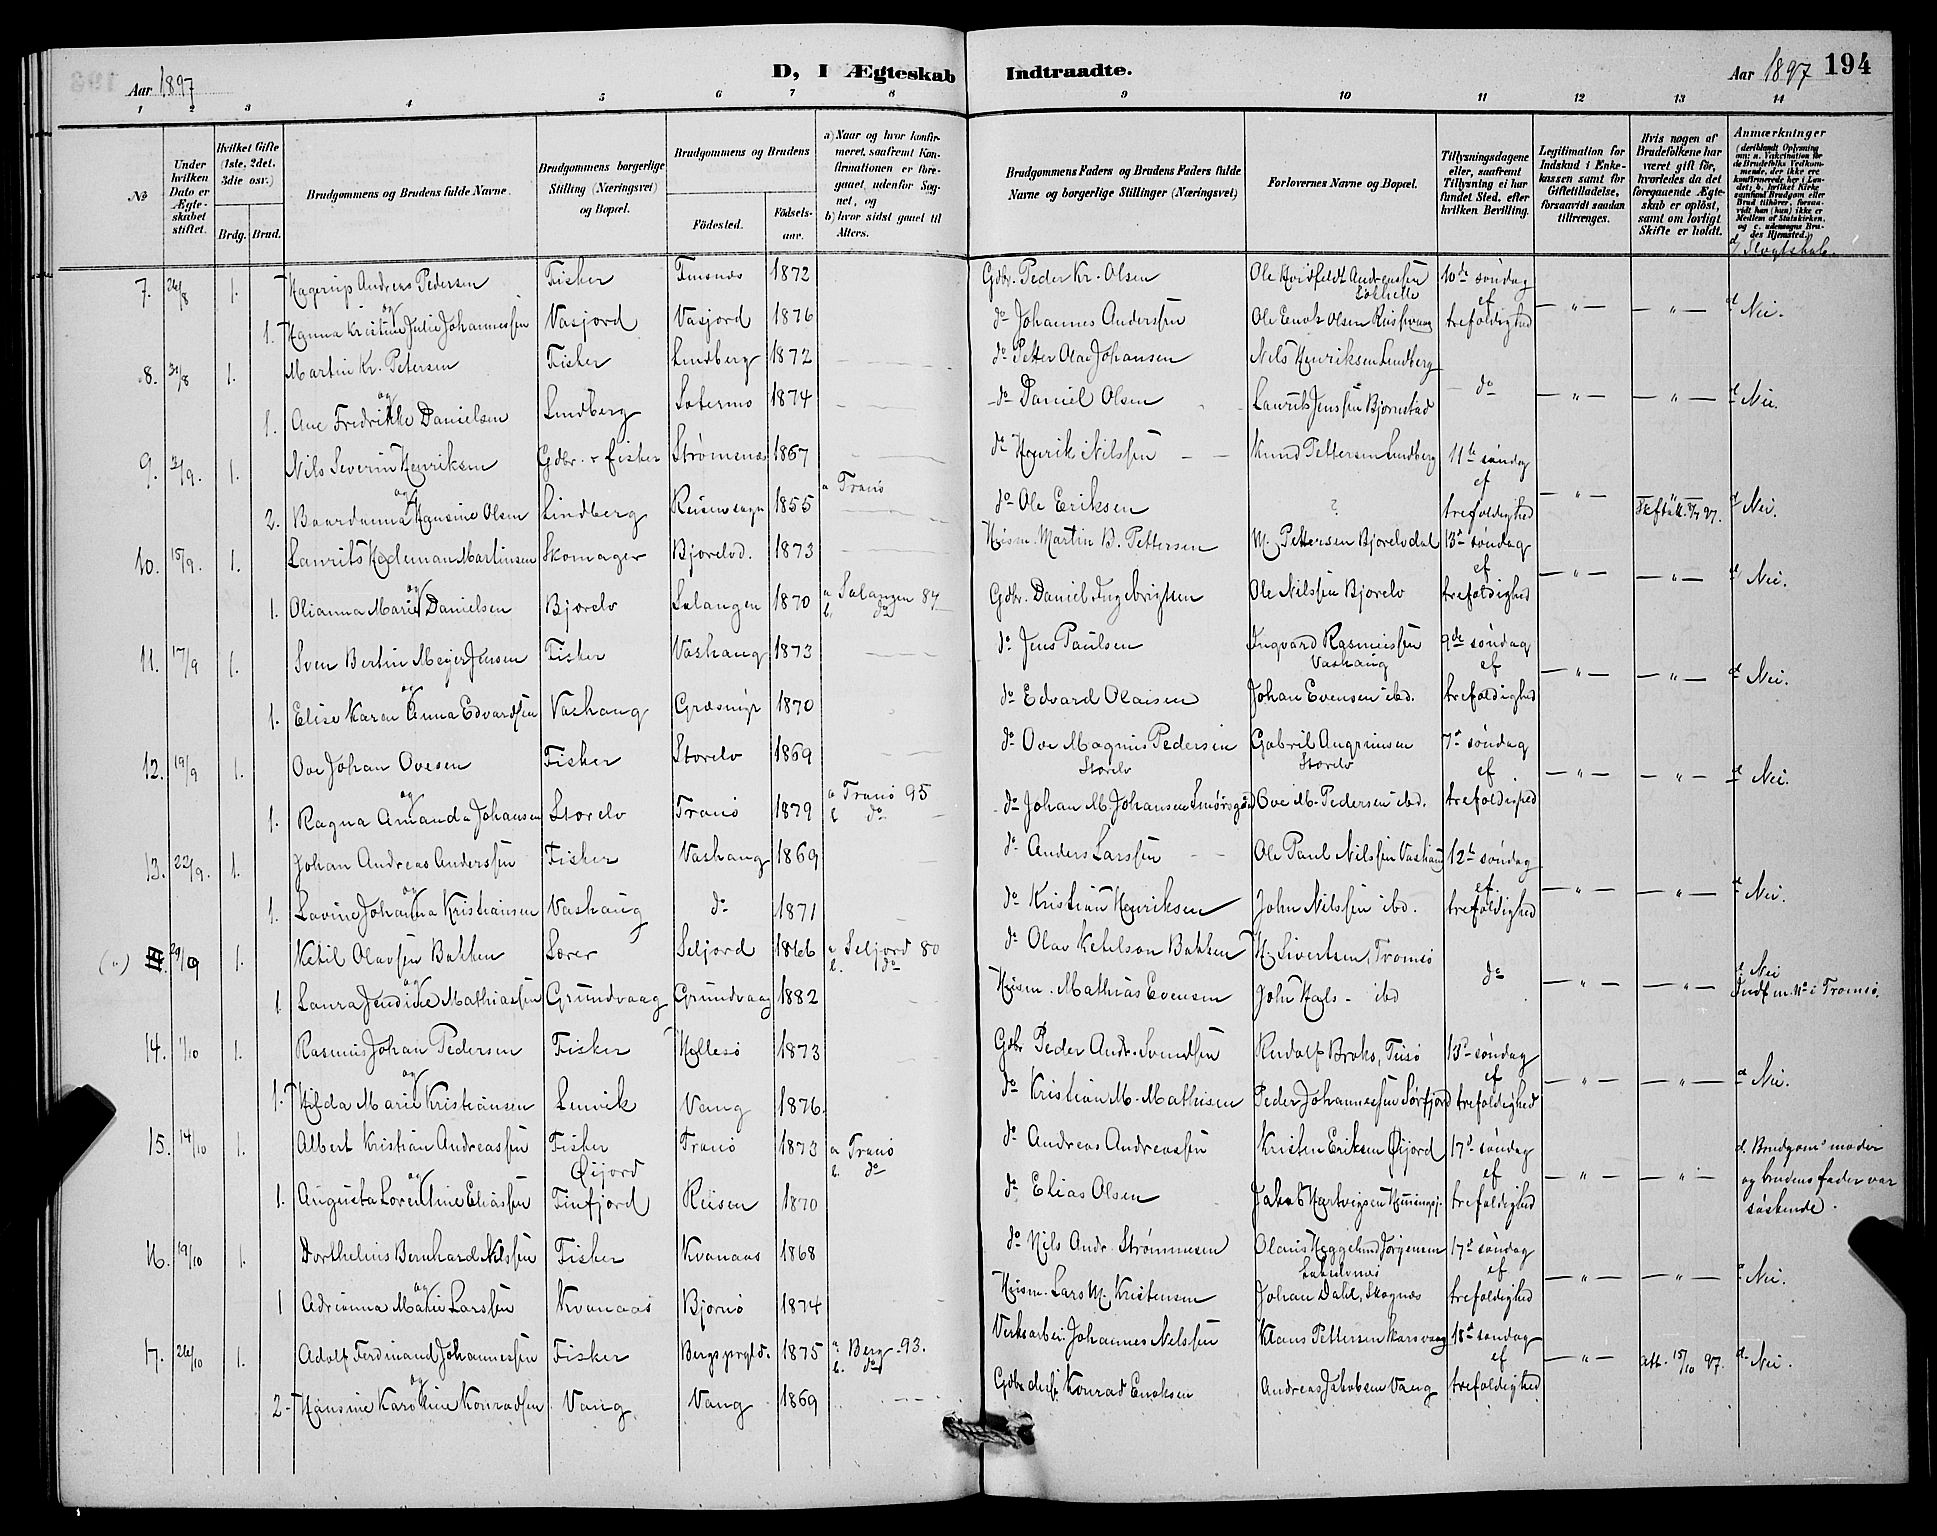 Aar 1897
D, I Ægteskab Indtraadte.
Aar 1897 194
1 2 3 4 5 6 7 8 9 10 11 12 13 14
No
Under hvilken Dato er Ægteskabet stiftet.
Hvilket Gifte (1ste, 2det, 3die osv.)
Brdg. Brud.
Brudgommens og Brudens fulde Navne.
Brudgommens borgerlige Stilling (Næringsvei) og Bopæl.
Brudgommens og Brudens
Fødested. Fødselsaar.
a) Naar og hvor konfirmeret, saafremt Konfirmationen er foregaaet udenfor Sognet, og
b) hvor sidst gaaet til Alters.
Brudgommens Faders og Brudens Faders fulde Navne og borgerlige Stillinger (Næringsvei)
Forlovernes Navne og Bopæl.
Tillysningsdagene eller, saafremt Tillysning ei har fundet Sted, efter hvilken Bevilling.
Legitimation for Indskud i Enkekassen samt for Giftetilladelse, forsaavidt saadan tiltrænges.
Hvis nogen af Brudefolkene har været gift før, hvorledes da det foregaaende Ægteskab er opløst, samt om lovligt Skifte er holdt.
Anmærkninger
(deriblandt Oplysning om: a. Vakcination for de Brudefolks Vedkommende, der ikke ere konfirmerede her i Landet; b. hvilket Kirkesamfund Brudgom eller Brud tilhører, forsaavidt han (hun) ikke er Medlem af Statskirken, og c. udensogns Brudes Hjemsted.)
d/ Slegtskab.
7. 26/8 1. Hagerup Andreas Pedersen Fisker Finsnæs 1872 Gdbr. Peder Kr. Olsen Ole Hvidfeldt Andreassen 10de søndag
og ef
1. Hanna Kristine Julie Johannessen Vasjord Vasjord 1876 do Johannes Anderssen Ole Enok Olsen trefoldighed — " — — " — d Nei.
8. 31/8 1. Martin Kr. Petersen Fisker Lindberg 1872 do Petter Olai Johansen Nils Henriksen Lindberg
og do — " — — " — d Nei.
1. Ane Fredrikke Danielsen Lindberg Sætermo 1874 do Daniel Olsen Laurits Jenssen Bjørnstad
9. 2/9. 1. Nils Severin Henriksen Gdbr. & fisker Strømsnæs 1867 do Henrik Nilssen Knud Pettersen Lindberg 11te søndag
og a Tranø ef
2. Baardanna Hansine Olsen Lindberg Reisensogn 1855 do Ole Eriksen ? trefoldighed — " — d Nei.
10. 15/9. 1. Laurits Hodeman Martinsen Skomager Bjorelvd. 1873 Husm. Martin B. Pettersen M. Pettersen Bjorelvdal 13de søndag
og ef
1. Olianna Marie Danielsen Bjorelv Salangen 1870 a Salangen 84 b. do Gdbr. Daniel Ingebrigtsen Ole Nilssen Bjorelv trefoldighed — " — — " — d Nei.
11. 17/9 1. Sven Bertin Meyer Jensen Fisker Vashaug 1873 do Jens Paulsen Ingvard Rasmussen 9de søndag
og Vashaug ef
1. Elise Karen Anna Edvardsen Vashaug Græsmyr 1870 do Edvard Olaisen Johan Evensen ibd. trefoldighed — " — — " — d Nei.
12. 19/9 1. Ove Johan Ovesen Fisker Storelv 1869 do Ove Magnus Pedersen Gabriel Angrimsen 7de søndag
og Storelv Storelv ef
1. Ragna Amanda Johansen Storelv Tranø 1879 a Tranø 95 b do do Johan M. Johansen Ove M. Pedersen ibd. trefoldighed — " — — " — d Nei.
13. 22/9. 1. Johan Andreas Anderssen Fisker Vashaug 1869 do Anders Larssen Ole Paul Nilssen Vashaug 12te søndag
og ef
1. Lavine Johanna Kristiansen Vashaug do 1871 do Kristian Henriksen John Nilssen ibd. trefoldighed — " — — " — d Nei.
(") 29/9 1. Ketil Olavsen Bakken Lærer Seljord 1866 a Seljord 80 b. do do Olav Ketilson Bakken H. Sivertsen, Tromsø
og do — " — — " — d Nei
1. Laura Jendine Mathiassen Grundvaag Grundvaag 1882 Husm. Mathias Evensen John Hals - ibd Indf. m. No i Tromsø.
14. 1/10 1. Rasmus Johan Pedersen Fisker Hellesø 1873 Gdbr Peder Andr. Svendsen Rudolf Broks, Tisø 13de søndag
og ef
1. Hilda Marie Kristiansen Lenvik Vang 1876. do Kristian M. Mathisen Peder Johannessen Sørfjord trefoldighed — " — — " — d Nei.
15. 14/10 1. Albert Kristian Andreassen Fisker Tranø 1873 a Tranø b. do do Andreas Andreassen Kristen Eriksen Øijord 17de søndag d. Brudgoms moder
og Øijord ef — " — — " — og brudens fader var
1. Augusta Lorentine Eliassen Finfjord Reisen 1870 do Elias Olsen Jakob Hartvigsen trefoldighed søskende.
16. 19/10 1. Dorthelius Bernhard Nilssen Fisker Kvanaas 1868 do Nils Andr. Strømmesen Olaus Heggelund Jørgensen 17de søndag
og ef
1 Adrianna Marie Larssen Kvanaas Bjornø 1874 Husm. Lars M. Kristensen Johan Dahl, Skognæs trefoldighed — " — — " — d Nei.
17. 26/10 1. Adolf Ferdinand Johannessen Fisker Bergs prgld. 1875 a. Berg 93. b. do Verksarbei. Johannes Nilssen Klaus Pettersen Karsvaag 18de søndag
og ef — " — Att. 15/10 97. d. Nei.
2. Hansine Karoline Konradsen Vang Vang 1869 Konrad Enoksen Andreas Jakobsen Vang trefoldighed